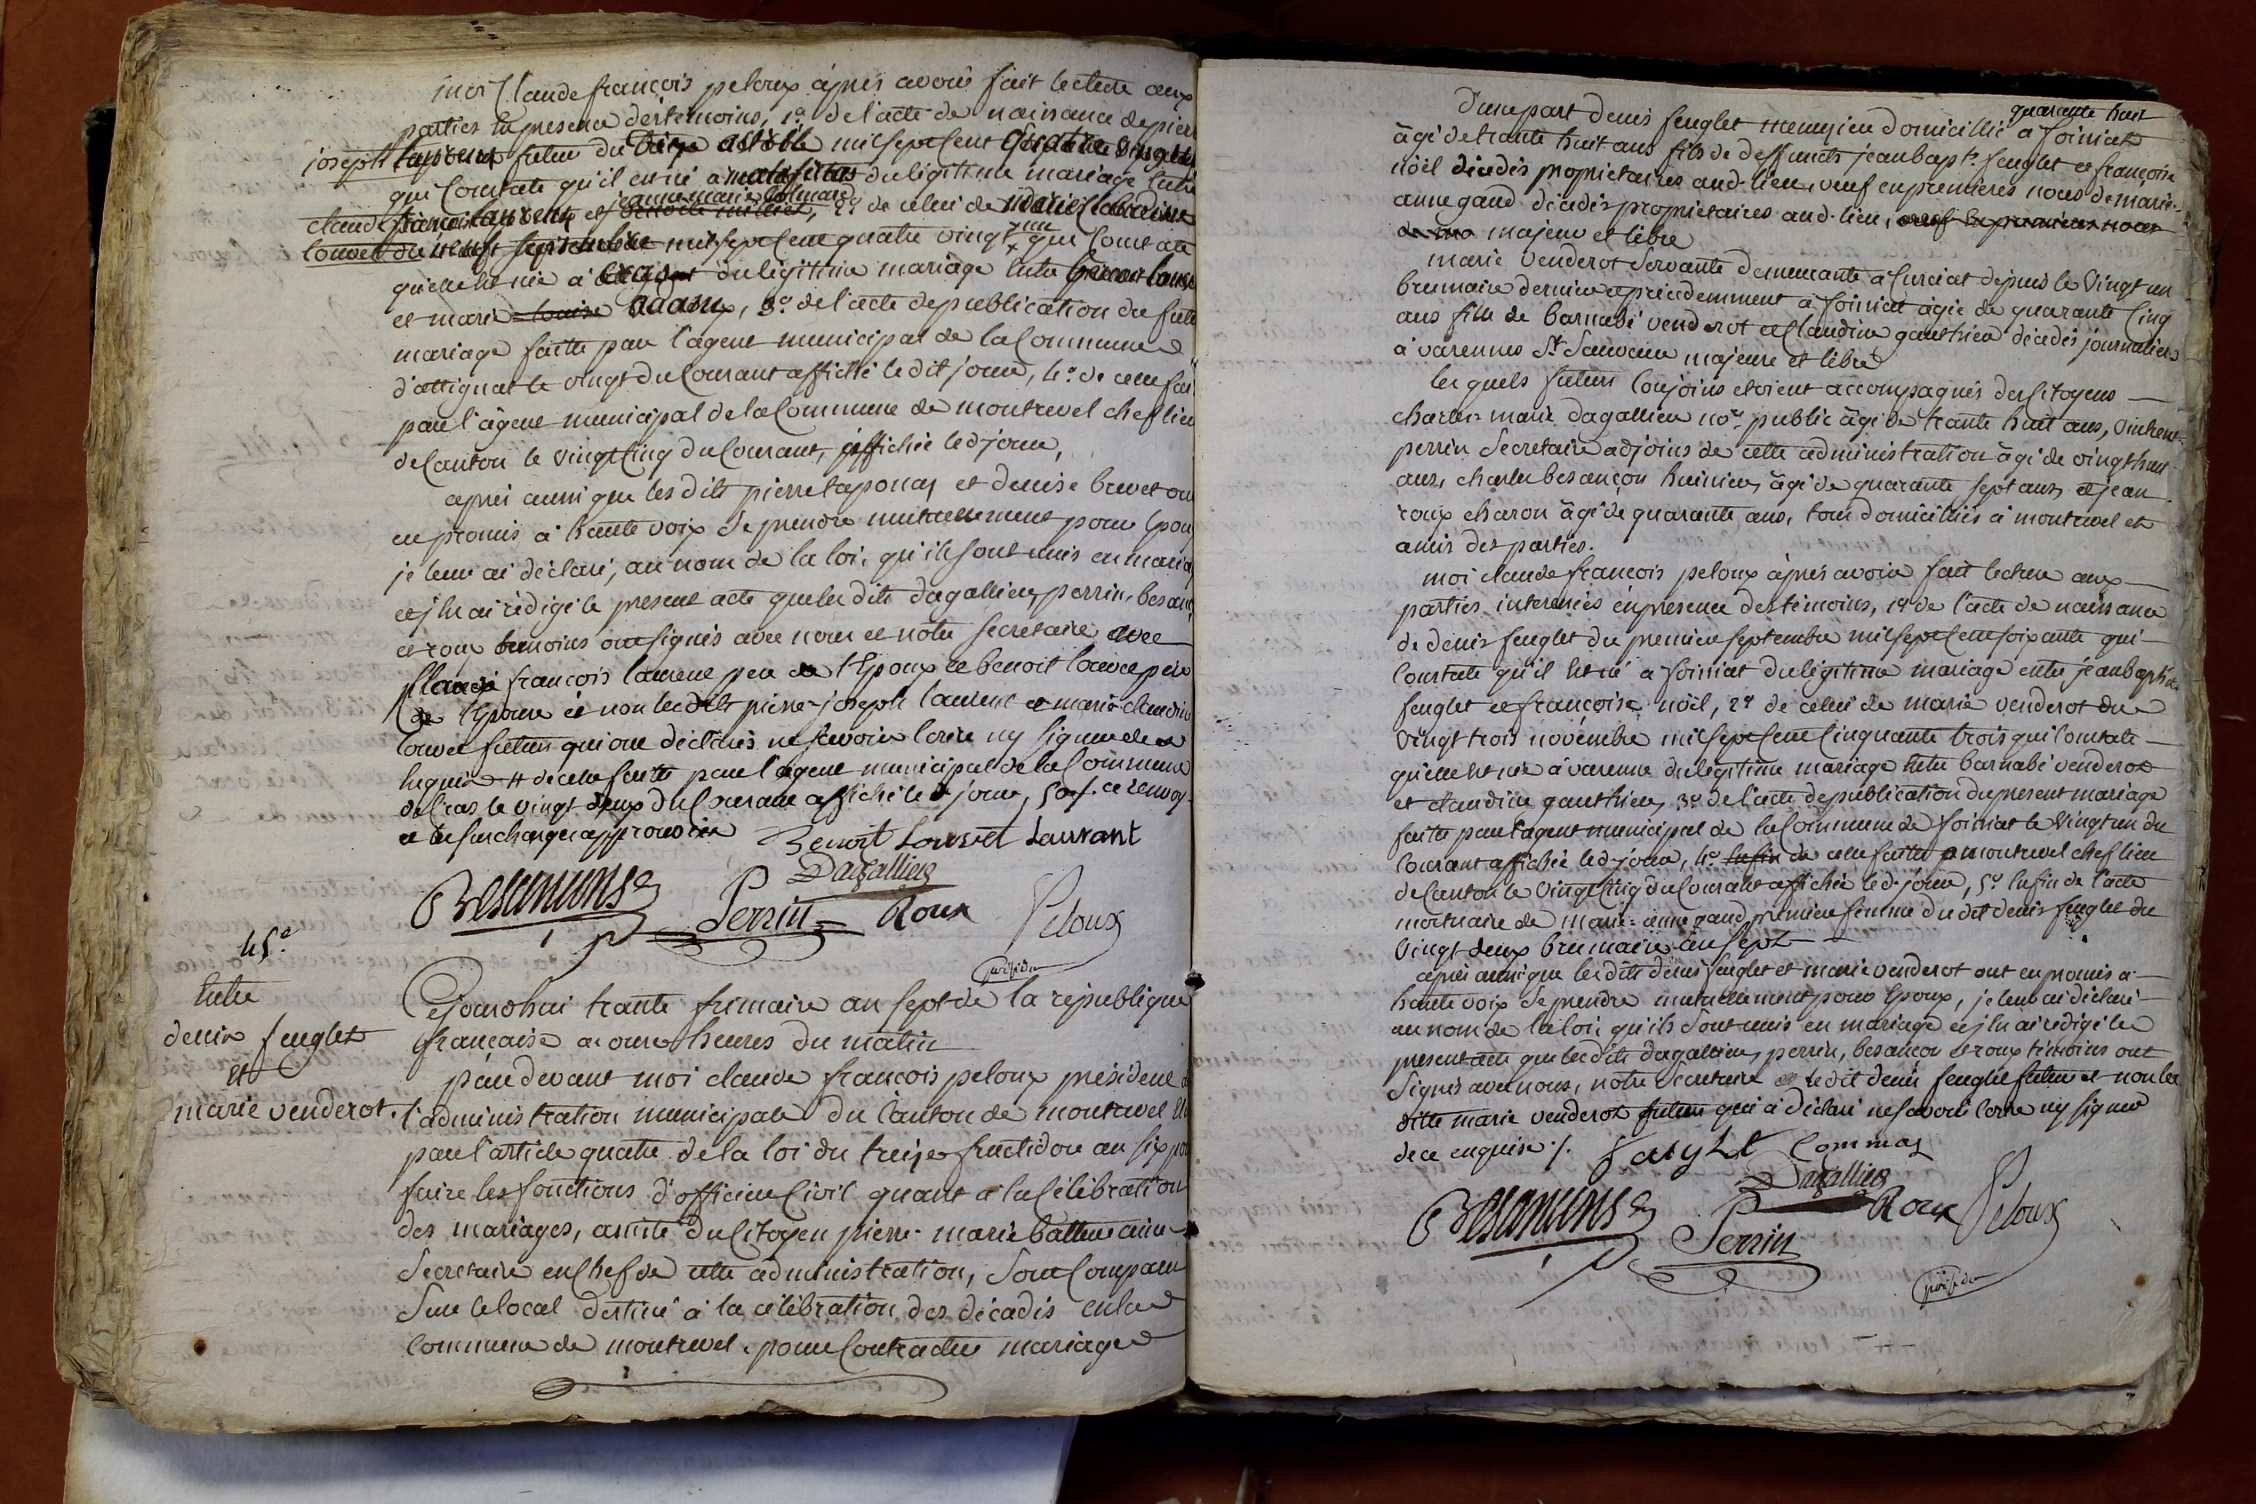 moi Claude françois peloux après avoir fait lecture aux
parties en presence des temoins, 1o. de l'acte de naissance de pierre
joseph laurent futur du octobre mil sept cent quatre vingt
qui Constate qu'il est né a du légitime mariage entre
jeanne marie
claude françois laurent et 2o. de celui de marie claudine
louvet du neuf septembre mil sept cent quatre vingt un qui Constate
qu'elle est née à du légitime mariage entre benoit louvet
et marie louise 3o. de l'acte de publication du futur
mariage faitte par l'agent municipal de la Commune
d'attignat le vingt du Courant affiché le dit jour, 4o. de celle faite
par l'âgent municipal de la Commune de montrevel chef lieu
de Canton le vingt Cinq du Courant, affichée led. jour,
après aussi que les dits pierre taponas et denise brevet ont
eu promis à haute voix de prendre mutuellement pour Epoux
je leur ai déclaré, au nom de la loi, qu'ils sont unis en mariage
et j'en ai rédigé le present acte que les dits dagallier, perrin, besançon
et roux temoins ont signés avec nous et notre secretaire avec
Claude françois laurent pere de l'Epoux et benoit louvet pere
de l'Epouse et non les dits pierre-joseph laurent et marie claudine
louvet futurs qui ont déclarés ne savoir lire ny signer de ce
requis # de celle faitte par l'agent municipal de la Commune
de Cras le vingt deux du Courant affiché le d. jour, 5o /. ce renvoy
et les surcharges approuvées Benoit Louvet Laurant
Dagallier
Besançons Perrin Roux Peloux
préside
45e.
Entre
denis fenglet
et
marie venderot.
Cejourdhui trante frimaire an sept de la republique
française a onze heures du matin
par devant moi claude françois peloux président de
l'administration municipale du Canton de montrevel Elu
par l'article quatre de la loi du treize fructidor an six pour
faire les fonctions d'officier Civil quant à la Célébration
des mariages, assisté du Citoyen pierre-marie aîné
Secretaire en Chef de cette administration, Sont Comparu
Sur le local destiné à la célébration des décadis en la
Commune de montrevel, pour Contracter mariage
quarante huit
D'une part denis fenglet menuzier domicillié a foissiat
âgé de trante huit ans fils de deffunts jean bapte. fenglet et françoise
nöil décédés propriétaires aud. lieu, veuf en premieres noces de marie-
anne gaud décédés propriétaires aud. lieu, veuf en premieres noces
de ma majeur et libre
marie venderot servante demeurante a Curciat depuis le Vingt un
brumaire dernier et précédemment à foissiat âgée de quarante Cinq
ans fille de barnabé venderot et Claudine gauthier décédés journaliers
à varennes St Sauveur majeure et libre
les quels futurs Conjoins etoient accompagnés des Citoyens
charles-marie dagallier nore. public âgé de trante huit ans, vintent
perrin Secretaire adjoins de cette administration âgé de vingt huit
ans, charles besançon huissier âgé de quarante sept ans et jean
roux charon âgé de quarante ans, tous domicilliés à montrevel et
amis des parties.
moi claude françois peloux après avoir fait lecture aux
parties interessées en presence des témoins, 1o. de l'acte de naissance
de denis fenglet du premier septembre mil sept cent soixante qui
Constate qu'il est né a foissiat du légitime mariage entre jean baptiste
fenglet et françoise nöil, 2o. de celui de marie venderot du
vingt trois novembre mil sept cent Cinquante trois qui Constate
qu'elle est née à varenne du légitime mariage entre barnabé venderot
et claudine gauthier, 3o. de l'acte de publication du present mariage
faitte par l'agent municipal de la Commune de foissiat le vingt un du
Courant affichée led. jour, 4o. Enfin de celle faitte a montrevel chef lieu
de Canton le vingt Cinq du Courant affichée led. jour, 5o. Enfin de l'acte
mortuaire de marie-anne gaud premiere femme du dit denis fenglet du
Vingt deux brumaire an sept
après aussi que les dits denis fenglet et marie venderot ont eu promis a
haute voix de prendre mutuellement pour Epoux, je leur ai déclaré
au nom de la loi, qu'ils sont unis en mariage et j'en ai rédigé le
present acte que les dits dagallier, perrin, besançon et roux témoins ont
Signés avec nous, notre secretaire et le dit denis fenglet futur et non la
ditte marie venderot future qui a déclaré ne savoir lire ny signer
de ce enquise /.
Dagallier
Besançons Perrin Roux Peloux
préside